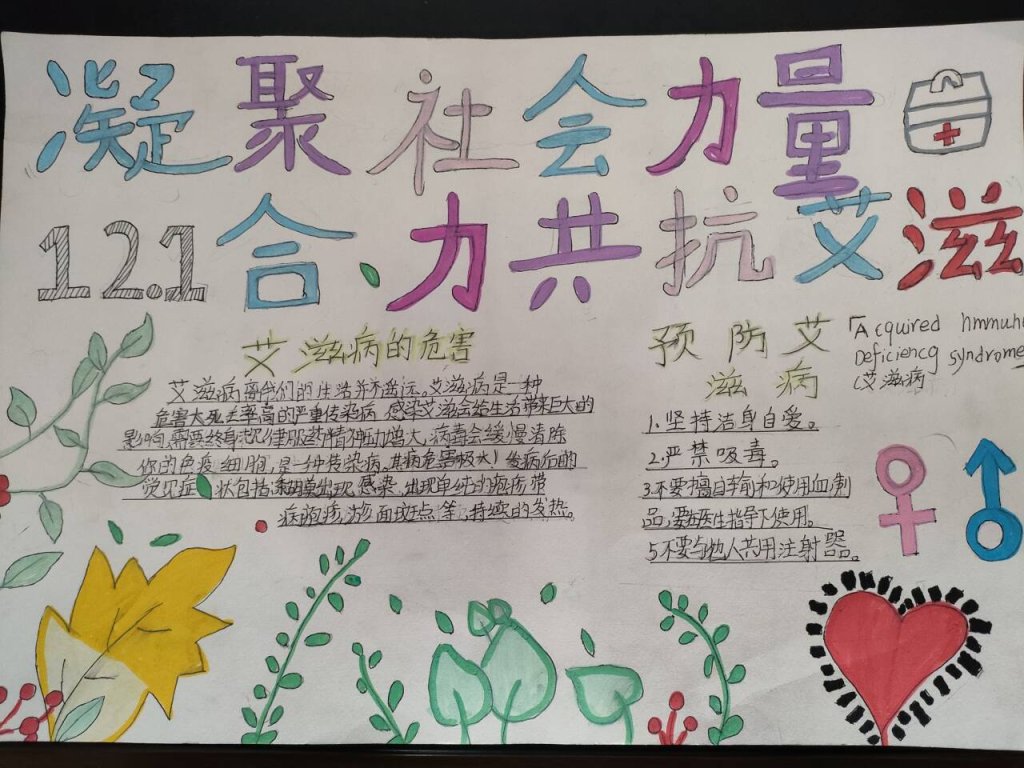 凝聚社会力量
12.1 合力共抗艾滋
艾滋病的危害
艾滋病离我们的生活并不遥远。艾滋病是一种
危害大死亡率高的严重传染病。感染艾滋会给生活带来巨大的
影响,需要终身规律服药精神压力增大,病毒会缓慢清除
你的免疫细胞,是一种传染病。其病危害极大!发病后的
常见症状包括:出现感染,出现单纯的疱疹带
病疱疹,面斑点等,持续的发热。
预防艾
滋病
「Acquired
Deficiency syndrome
(艾滋病
1.坚持洁身自爱。
2.严禁吸毒。
3.不要擅自输血和使用血制
品,要在医生指导下使用。
5.不要与他人共用注射器。